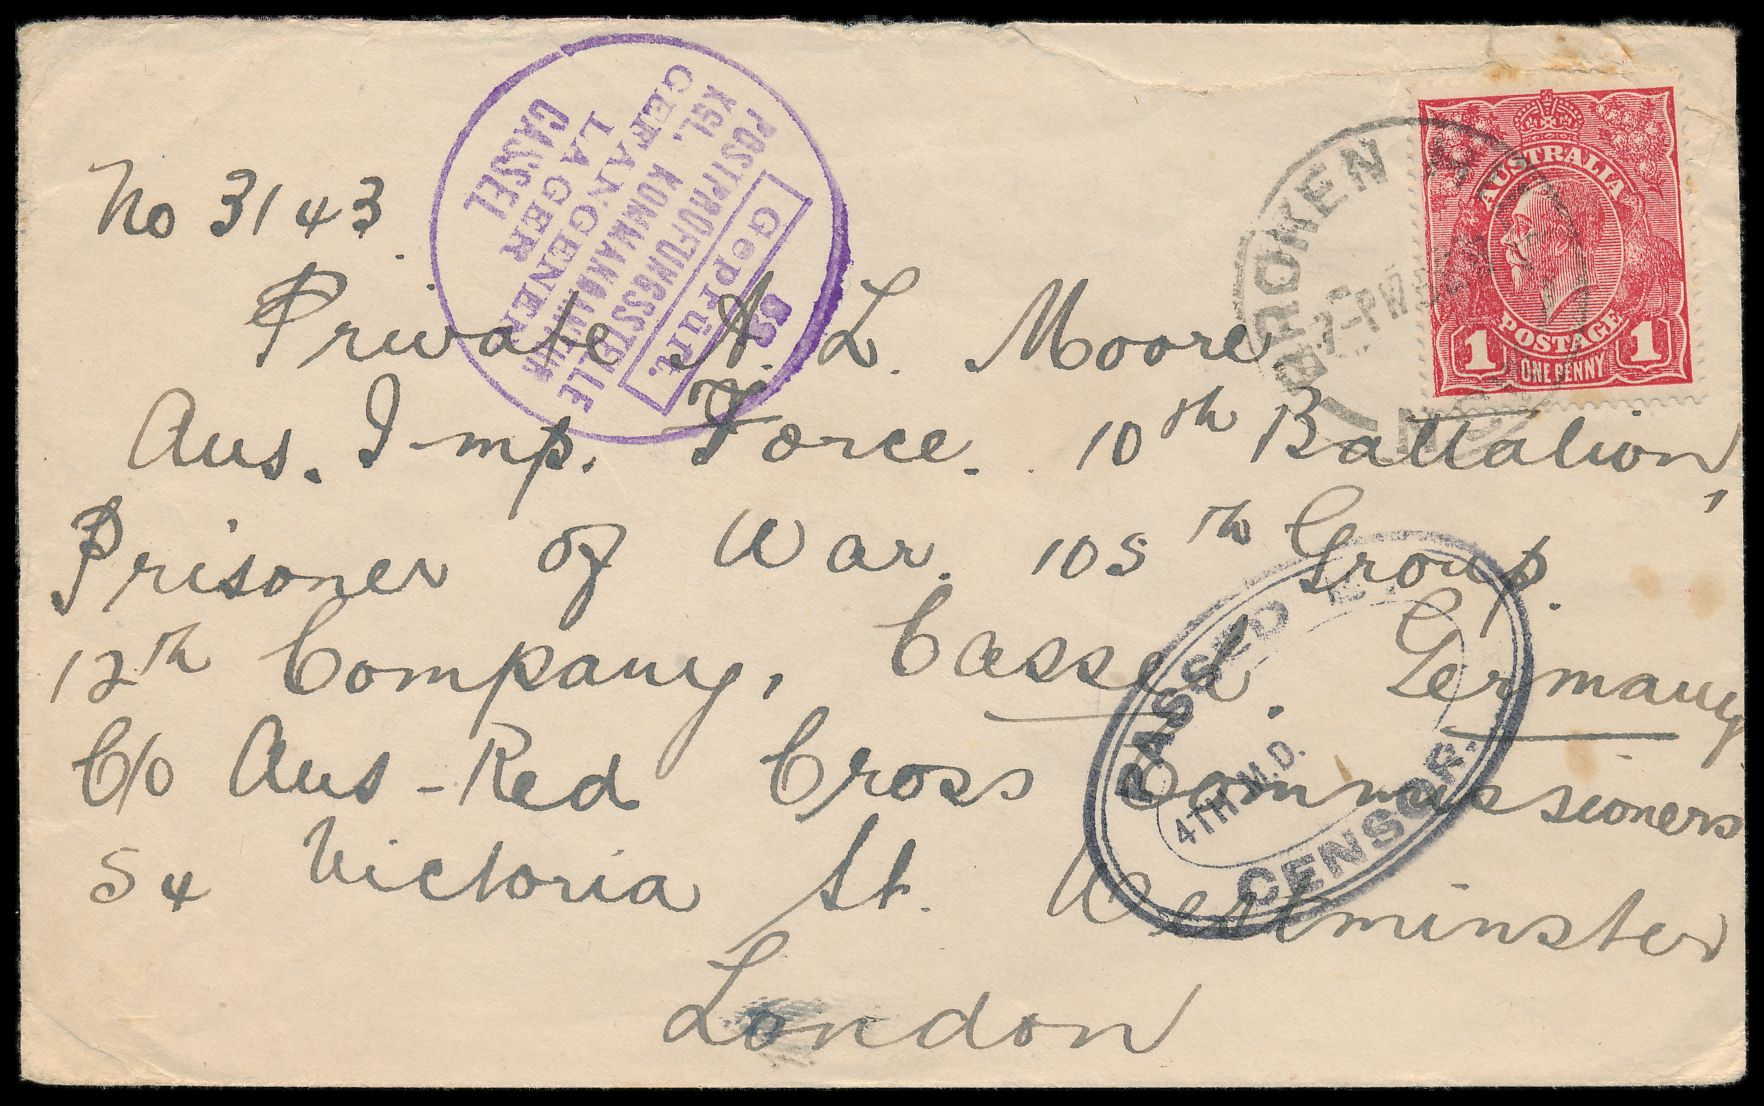 No 3143.
Private A. L. Moore
Aus. Imp. Force. 10th Battalion,
Prisoner of War. 105th Group.
12th Company, Cassel. Germany
C/o Aus-Red Cross Commissioners
54 Victoria St. Westminster
London
53
Geprüft.
POSTPRÜFUNGSSTELLE
KGL. KOMMANDANTUR
GEFANGENEN
LAGER
CASSEL
BROKEN H
N.S.W
AUSTRALIA
POSTAGE
1 ONE PENNY 1
PASSED BY
4TH M.D.
CENSOR.